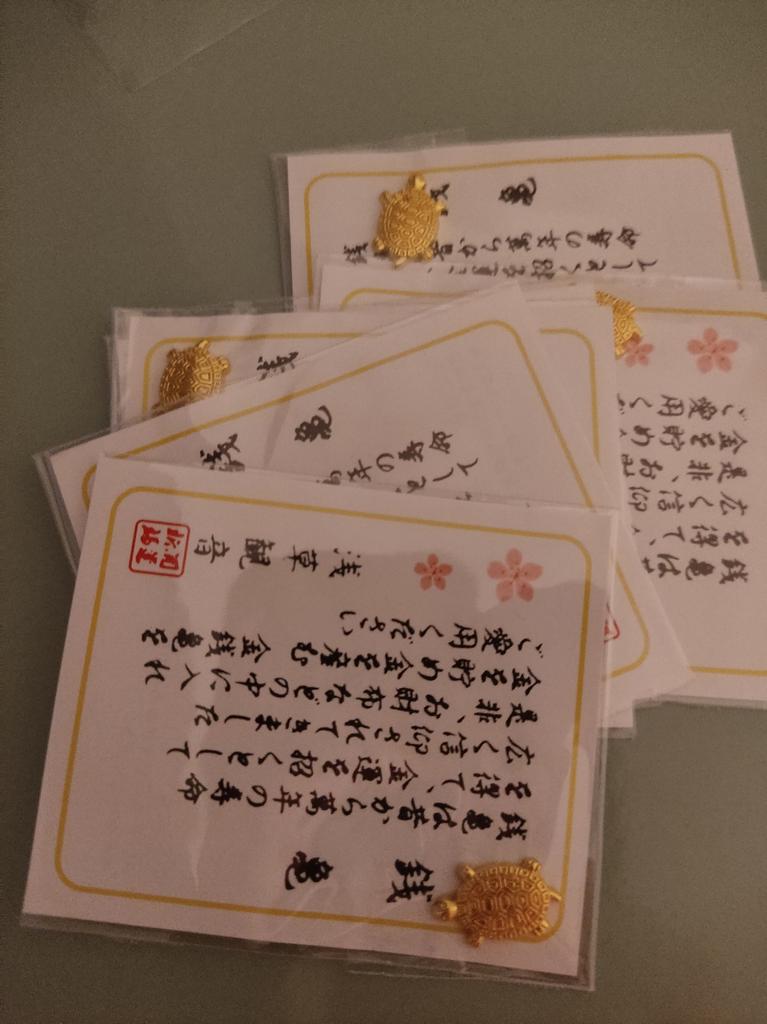 銭亀
銭亀は昔から萬年の寿命
を得て、金運を招くとして
広く信仰されてきました
是非、お財布などの中に入れ
金を貯め金を産む金銭亀を
ご愛用ください
浅草観音
銭亀は
を得て、
広く信仰
是非、お
金を貯め
ご愛用く
亀
銭亀
銭